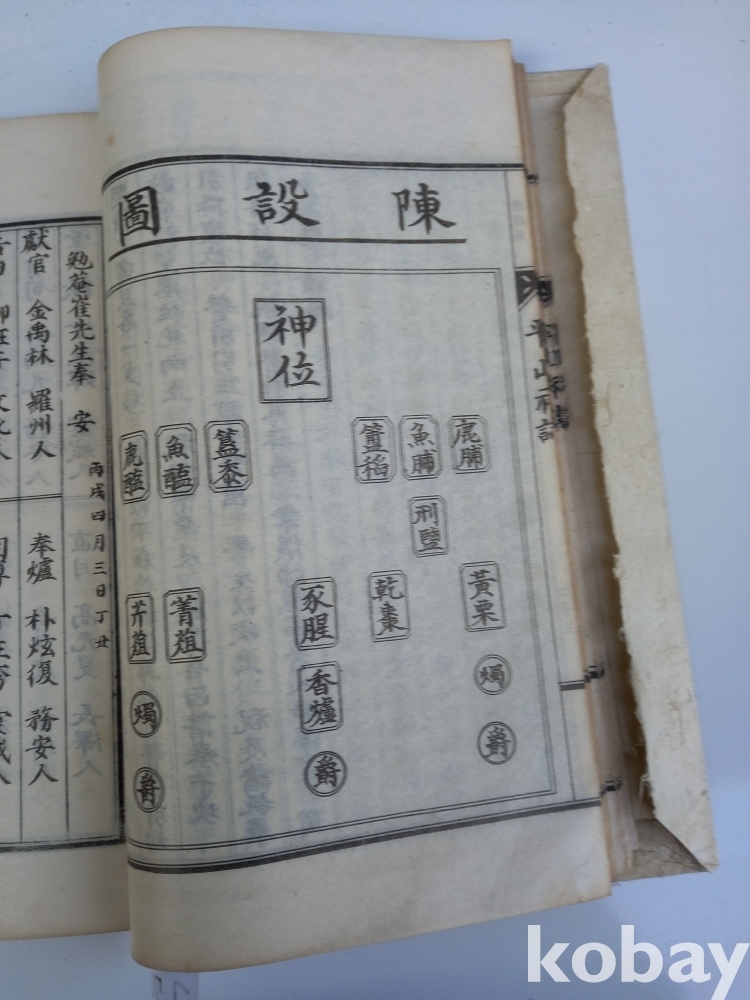 陳設圖
神位
鹿脯
魚脯
簠稻
簋黍
魚醢
鹿醢
刑鹽
黃栗
乾棗
豕腥
菁菹
芹菹
燭
香爐
燭
爵
爵
爵
勉菴崔先生奉安 丙戌四月三日丁丑
獻官 金禹林 羅州人
奉爐 朴炫復 務安人
kobay